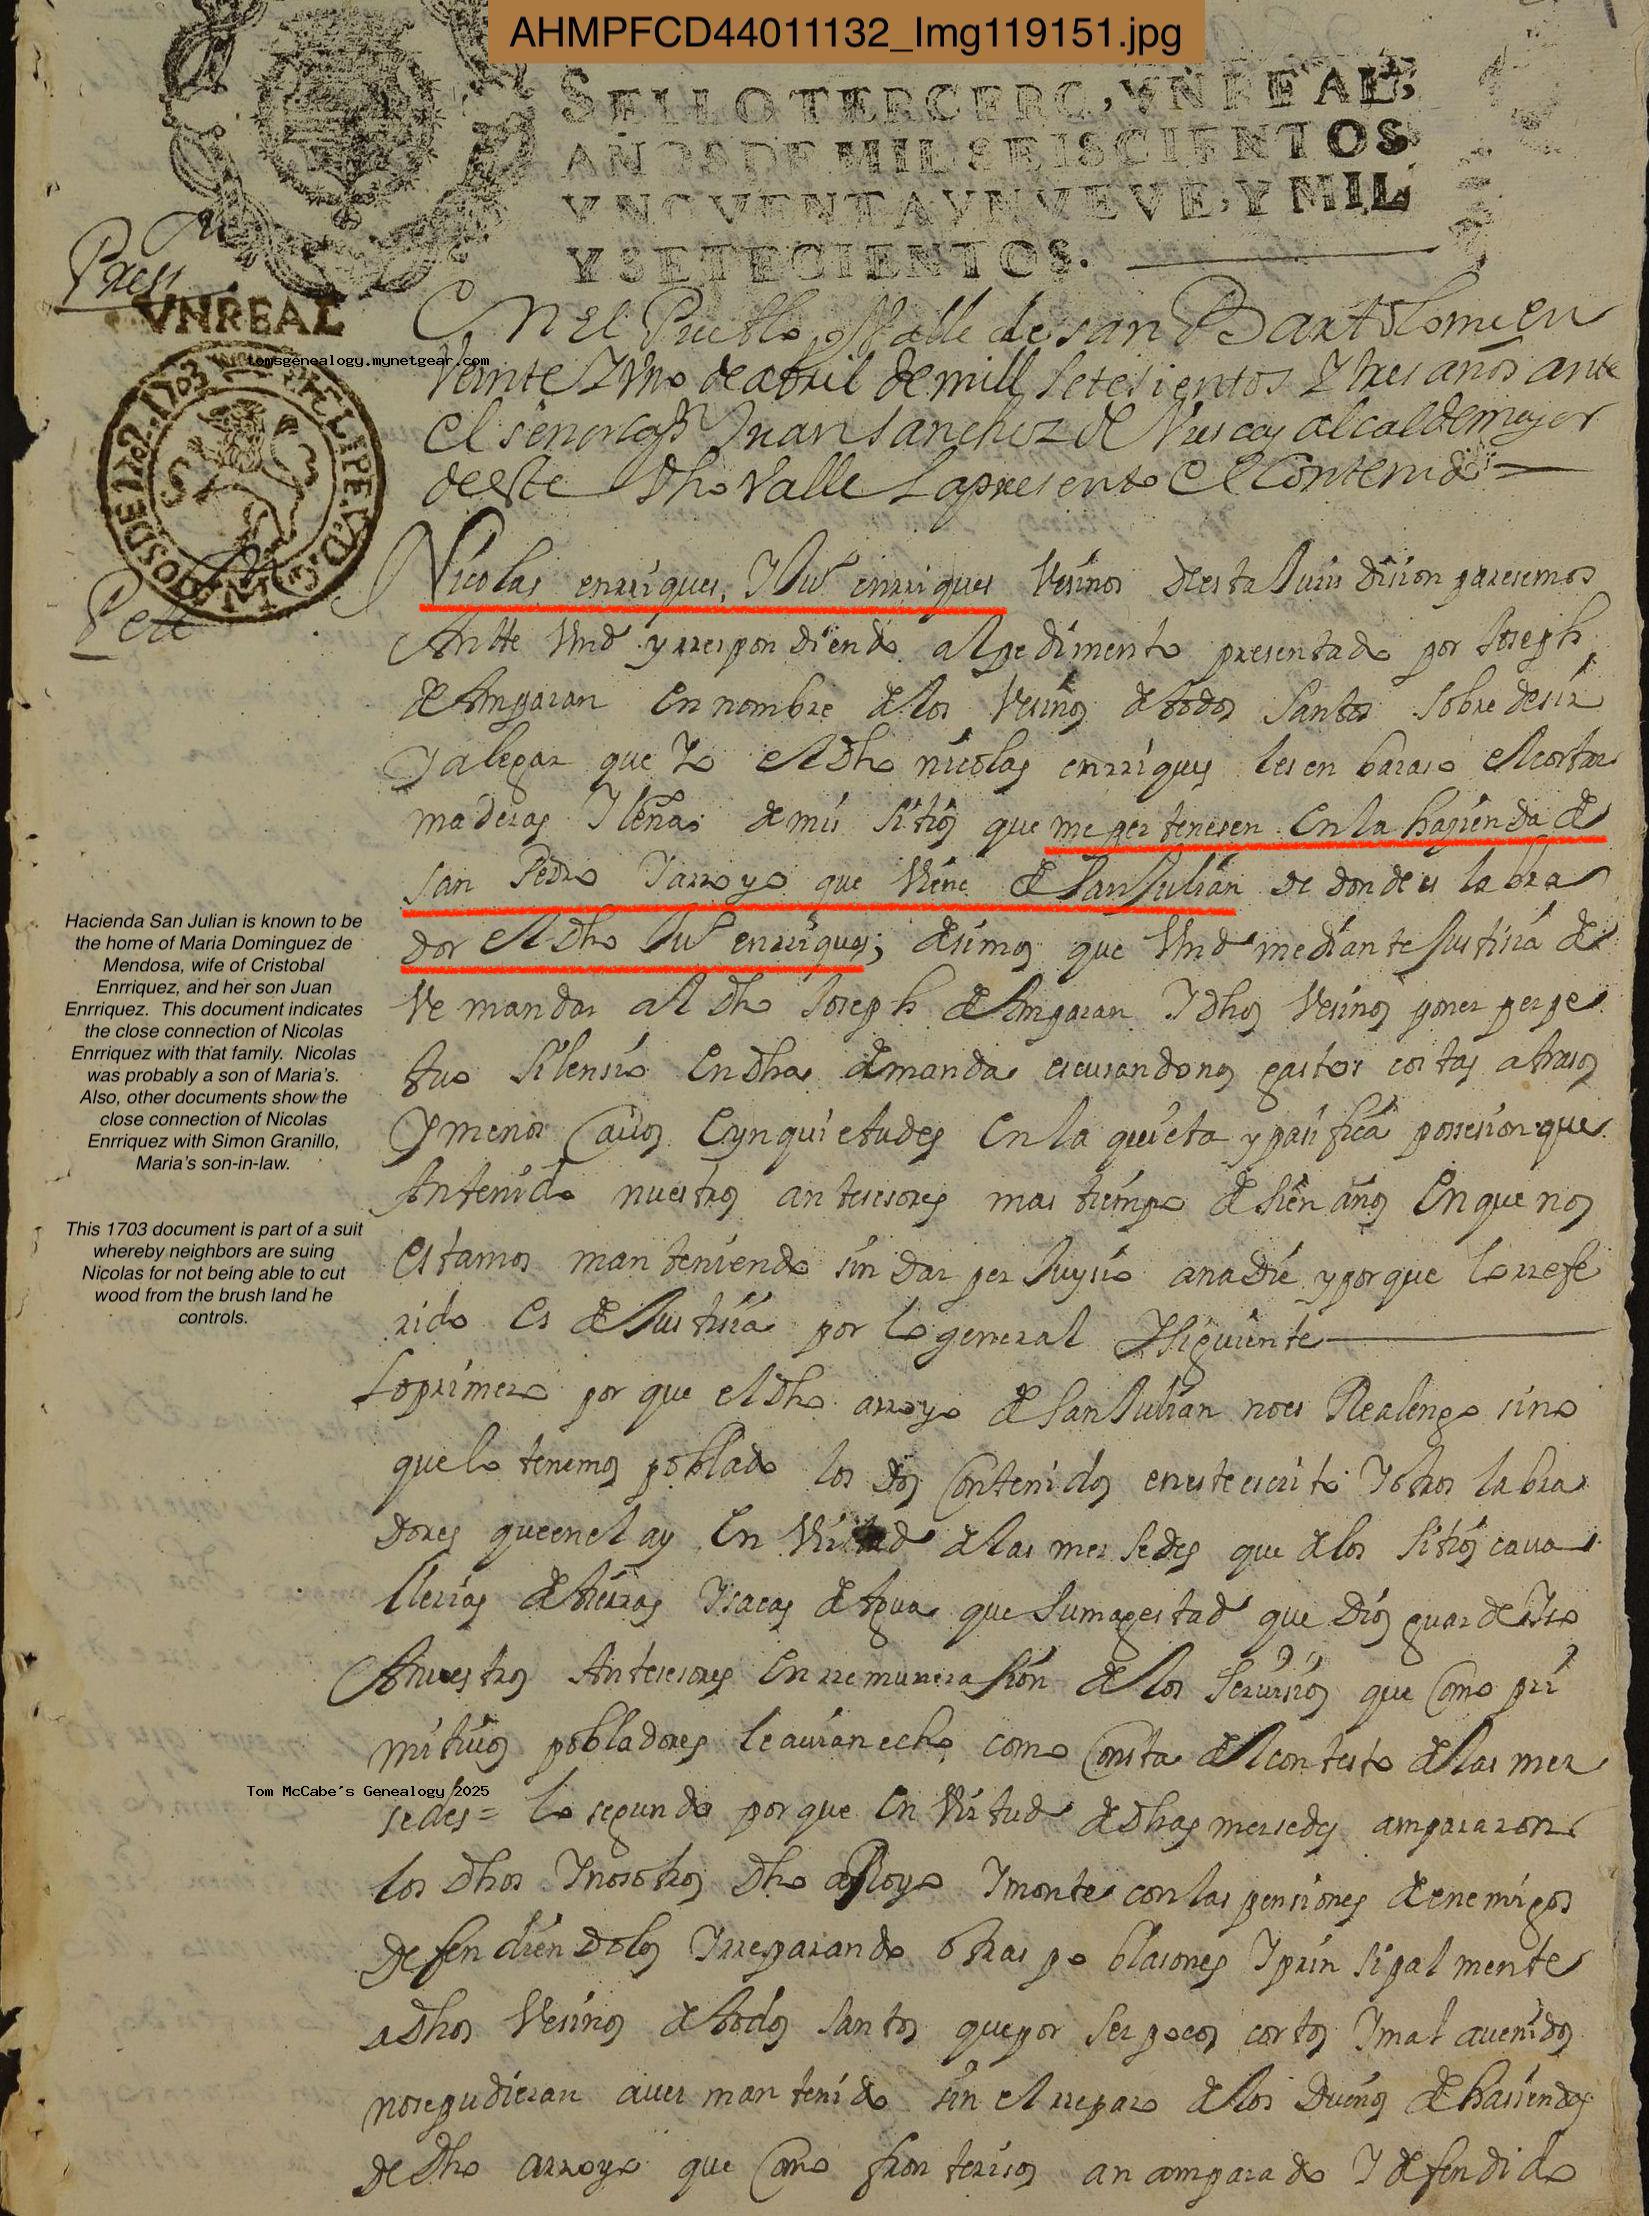 AHMPFCD44011132_Img119151.jpg
SELLO TERCERO, VN REAL,
AÑOS DE MIL SEISCIENTOS
Y NOVENTA Y NVEVE, Y MIL
Y SETECIENTOS.
Press
VNREAL
tomsgenealogy.mynetgear.com
En el Pueblo y Valle de san Bartolome en
Veinte y Vno de abril de mill setesientos y tres años ante
el señor Capn Juan sanchez de Viscay alcalde mayor
deeste dho Valle Lapresento el Contenido =
Petn
Nicolas enrriques, y Juo enrriques Vesinos desta Jurisdision paresemos
Antte Vmd y rrespondiendo al pedimento presentado por Joseph
de Amparan en nombre de los Vesinos de todos santos sobre desir
y alegar que Yo el dho nicolas enrriques les en baraso el cortar
maderas y leñas de mis sitios que me pertenesen en la hasienda de
san Pedro y arroyo que Viene de san Julian de donde es labra
dor el dho Juo enrriques; desimos que Vmd mediante Justisia de
Ve mandar al dho Joseph de Amparan y dhos Vesinos poner perpe
tuo silensio en dha demanda escusandonos gastos costas atrasos
y menos Cavos e ynquietudes en la quieta y pasifica possesion que
An tenido nuestros antesesores mas tiempo de sien años en que nos
estamos manteniendo sin dar perJuysio a nadie y por que lo rrefe
rido es de Justisia por lo general y siguiente
Lo primero por que el dho arroyo de san Julian no es Realengo sino
que lo tenemos poblado los dos Contenidos en este escrito y otros labra
dores que en el ay en Virtud de las mersedes que de los sitios cava
llerias de tierras y sacas de Agua que su magestad que Dios guarde yso
A nuestros Antesesores en rremunerasion de los servisios que Como pri
mitivos pobladores le avian echo como Consta del contesto de las mer
sedes = lo segundo por que en Virtud de dhas mersedes ampararon
los dhos y nosotros dho aRoyo y monte con las pensiones de enemigos
defendiendolos y rreparando otras poblasones y prinsipalmente
a dhos Vesinos de todos santos que por ser pocos cortos y mal avenidos
no se pudieran aver mantenido sin el rreparo de los Dueños de hasiendas
de dho arroyo que Como fronterisos an amparado y defendido
Hacienda San Julian is known to be
the home of Maria Dominguez de
Mendosa, wife of Cristobal
Enrriquez, and her son Juan
Enrriquez. This document indicates
the close connection of Nicolas
Enrriquez with that family. Nicolas
was probably a son of Maria's.
Also, other documents show the
close connection of Nicolas
Enrriquez with Simon Granillo,
Maria's son-in-law.
This 1703 document is part of a suit
whereby neighbors are suing
Nicolas for not being able to cut
wood from the brush land he
controls.
Tom McCabe's Genealogy 2025